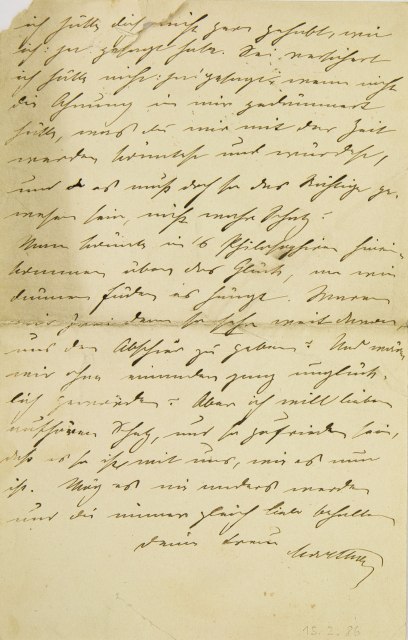 ich hätte dich nicht gern gehabt, wie
ich: ja gesagt habe. Sei versichert
ich hätte nicht: ja! gesagt, wenn nicht
die Ahnung in mir gedämmert
hätte, was du mir mit der Zeit
werden könntest und würdest,
und es muß doch so das Richtige ge-
wesen sein, nicht wahr Schatz?
Man könnte in's Philosophiren hinein-
kommen über das Glück, an wie
dünnen Fäden es hängt. Waren
wir zwei denn so sehr weit davon
uns den Abschied zu geben? Und wären
wir ohne einander ganz unglück-
lich geworden? Aber ich will lieber
aufhören Schatz, und so zufrieden sein,
daß es so ist mit uns, wie es nun
ist. Mög es nie anders werden
und du immer gleich lieb behalten
deine treue
13.2.86